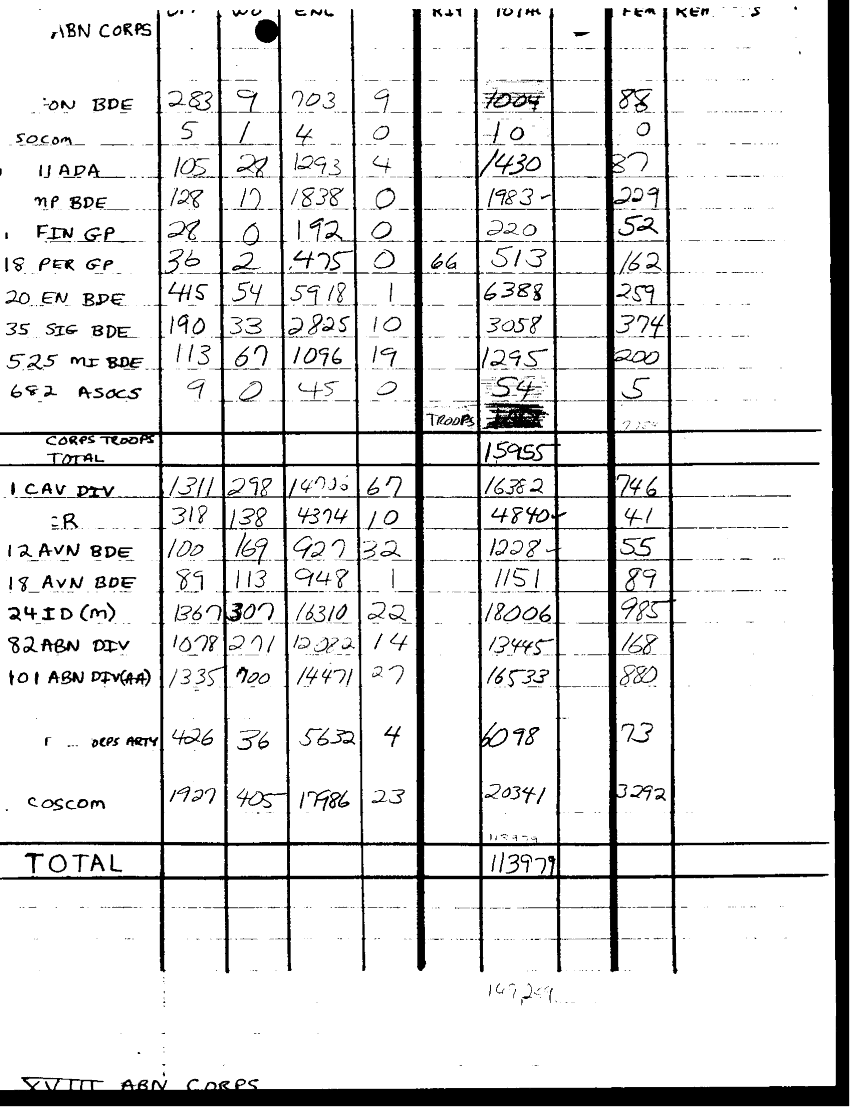 ABN CORPS WO ENL TOTAL FEM
ON BDE 283 9 703 9 1004 88
SOCOM 5 1 4 0 10 0
11 ADA 105 28 1293 4 1430 87
MP BDE 128 17 1838 0 1983 - 229
FIN GP 28 0 192 0 220 52
18 PER GP 36 2 475 0 66 513 162
20 EN BDE 415 54 5918 1 6388 259
35 SIG BDE 190 33 2825 10 3058 374
525 MI BDE 113 67 1096 19 1295 200
682 ASOCS 9 0 45 0 54 5
TROOPS
CORPS TROOPS
TOTAL 15955
1 CAV DIV 1311 298 67 16382 746
CR 318 138 4374 10 4840 41
12 AVN BDE 100 169 927 32 1228 - 55
18 AVN BDE 89 113 948 1 1151 89
24 ID (M) 1367 307 16310 22 18006 985
82 ABN DIV 1078 271 12082 14 13445 168
101 ABN DIV(AA) 1335 700 14471 27 16533 880
ORPS ARTY 426 36 5632 4 6098 73
COSCOM 1927 405 17986 23 20341 3292
113979
TOTAL 113979
XVIII ABN CORPS